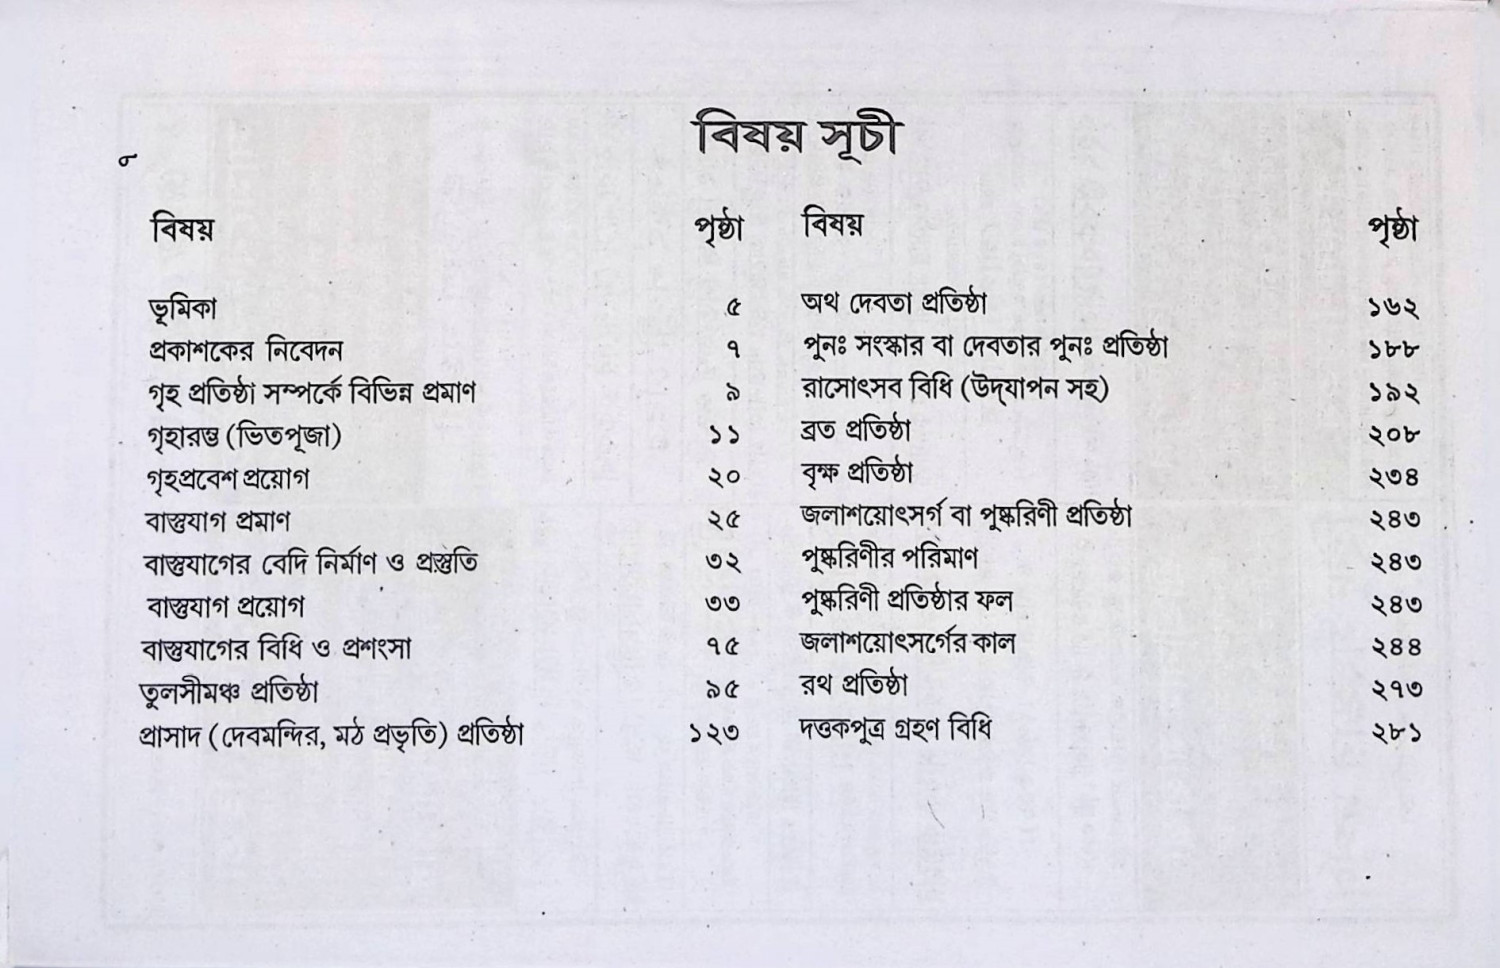 বিষয় সূচী
বিষয় পৃষ্ঠা
ভূমিকা ৫
প্রকাশকের নিবেদন ৭
গৃহ প্রতিষ্ঠা সম্পর্কে বিভিন্ন প্রমাণ ৯
গৃহারম্ভ (ভিতপূজা) ১১
গৃহপ্রবেশ প্রয়োগ ২০
বাস্তুযাগ প্রমাণ ২৫
বাস্তুযাগের বেদি নির্মাণ ও প্রস্তুতি ৩২
বাস্তুযাগ প্রয়োগ ৩৩
বাস্তুযাগের বিধি ও প্রশংসা ৭৫
তুলসীমঞ্চ প্রতিষ্ঠা ৯৫
প্রাসাদ (দেবমন্দির, মঠ প্রভৃতি) প্রতিষ্ঠা ১২৩
বিষয় পৃষ্ঠা
অথ দেবতা প্রতিষ্ঠা ১৬২
পুনঃ সংস্কার বা দেবতার পুনঃ প্রতিষ্ঠা ১৮৮
রাসোৎসব বিধি (উদ্‌যাপন সহ) ১৯২
ব্রত প্রতিষ্ঠা ২০৮
বৃক্ষ প্রতিষ্ঠা ২৩৪
জলাশয়োৎসর্গ বা পুষ্করিণী প্রতিষ্ঠা ২৪৩
পুষ্করিণীর পরিমাণ ২৪৩
পুষ্করিণী প্রতিষ্ঠার ফল ২৪৩
জলাশয়োৎসর্গের কাল ২৪৪
রথ প্রতিষ্ঠা ২৭৩
দত্তকপুত্র গ্রহণ বিধি ২৮১